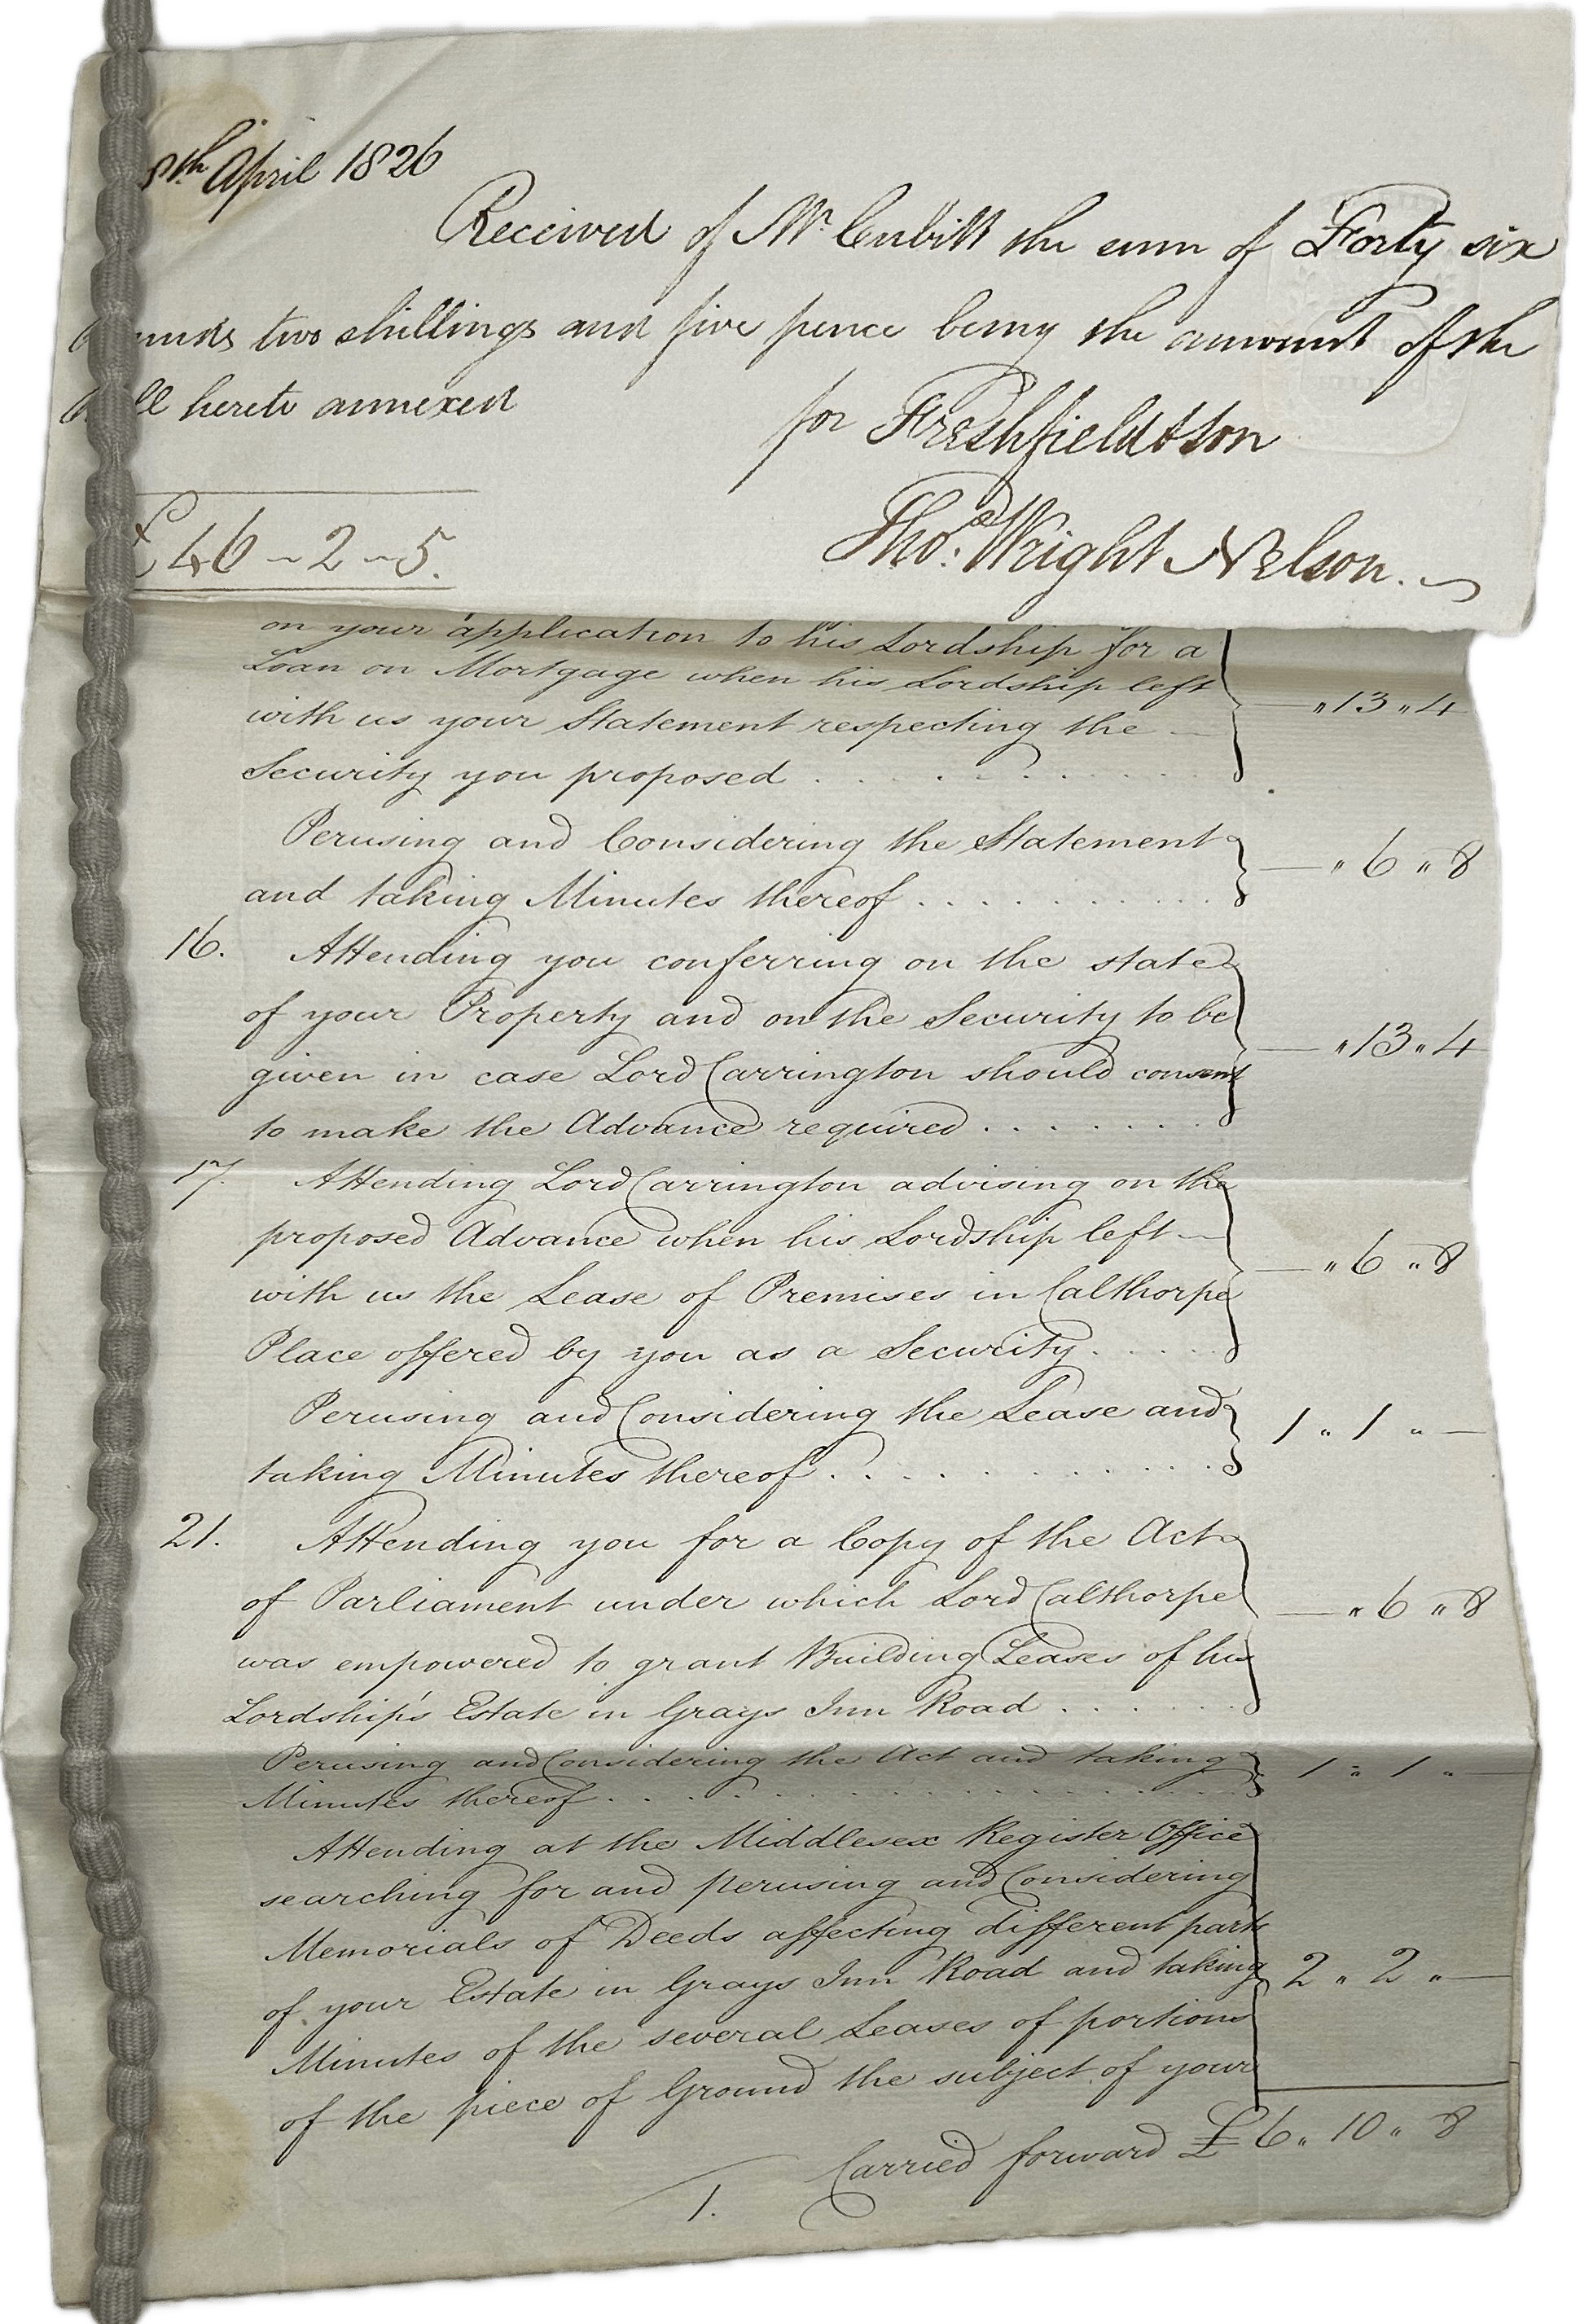 8th April 1826
Received of Mr Cubitt the sum of Forty six
two shillings and five pence being the amount of the
hereto annexed
for Freshfield & Son
£46-2-5.
Thos. Wright Nelson.
on your application to his Lordship for a
Loan on Mortgage when his Lordship left
with us your Statement respecting the
Security you proposed . . . . . . — " 13 " 4
Perusing and Considering the Statement
and taking Minutes thereof . . . . . . — " 6 " 8
16. Attending you conferring on the state
of your Property and on the Security to be
given in case Lord Carrington should consent — " 13 " 4
to make the Advance required . . . . . .
17. Attending Lord Carrington advising on the
proposed Advance when his Lordship left —
with us the Lease of Premises in Calthorpe — " 6 " 8
Place offered by you as a Security . . . . .
Perusing and Considering the Lease and
taking Minutes thereof . . . . . . 1 " 1 " —
21. Attending you for a Copy of the Act
of Parliament under which Lord Calthorpe — " 6 " 8
was empowered to grant Building Leases of his
Lordship's Estate in Grays Inn Road . . . . .
Perusing and Considering the Act and taking 1 " 1 " —
Minutes thereof . . . . . .
Attending at the Middlesex Register Office
searching for and perusing and Considering
Memorials of Deeds affecting different parts
of your Estate in Grays Inn Road and taking 2 " 2 " —
Minutes of the several Leases of portions
of the piece of Ground the subject of your
Carried forward £6 " 10 " 8
1.